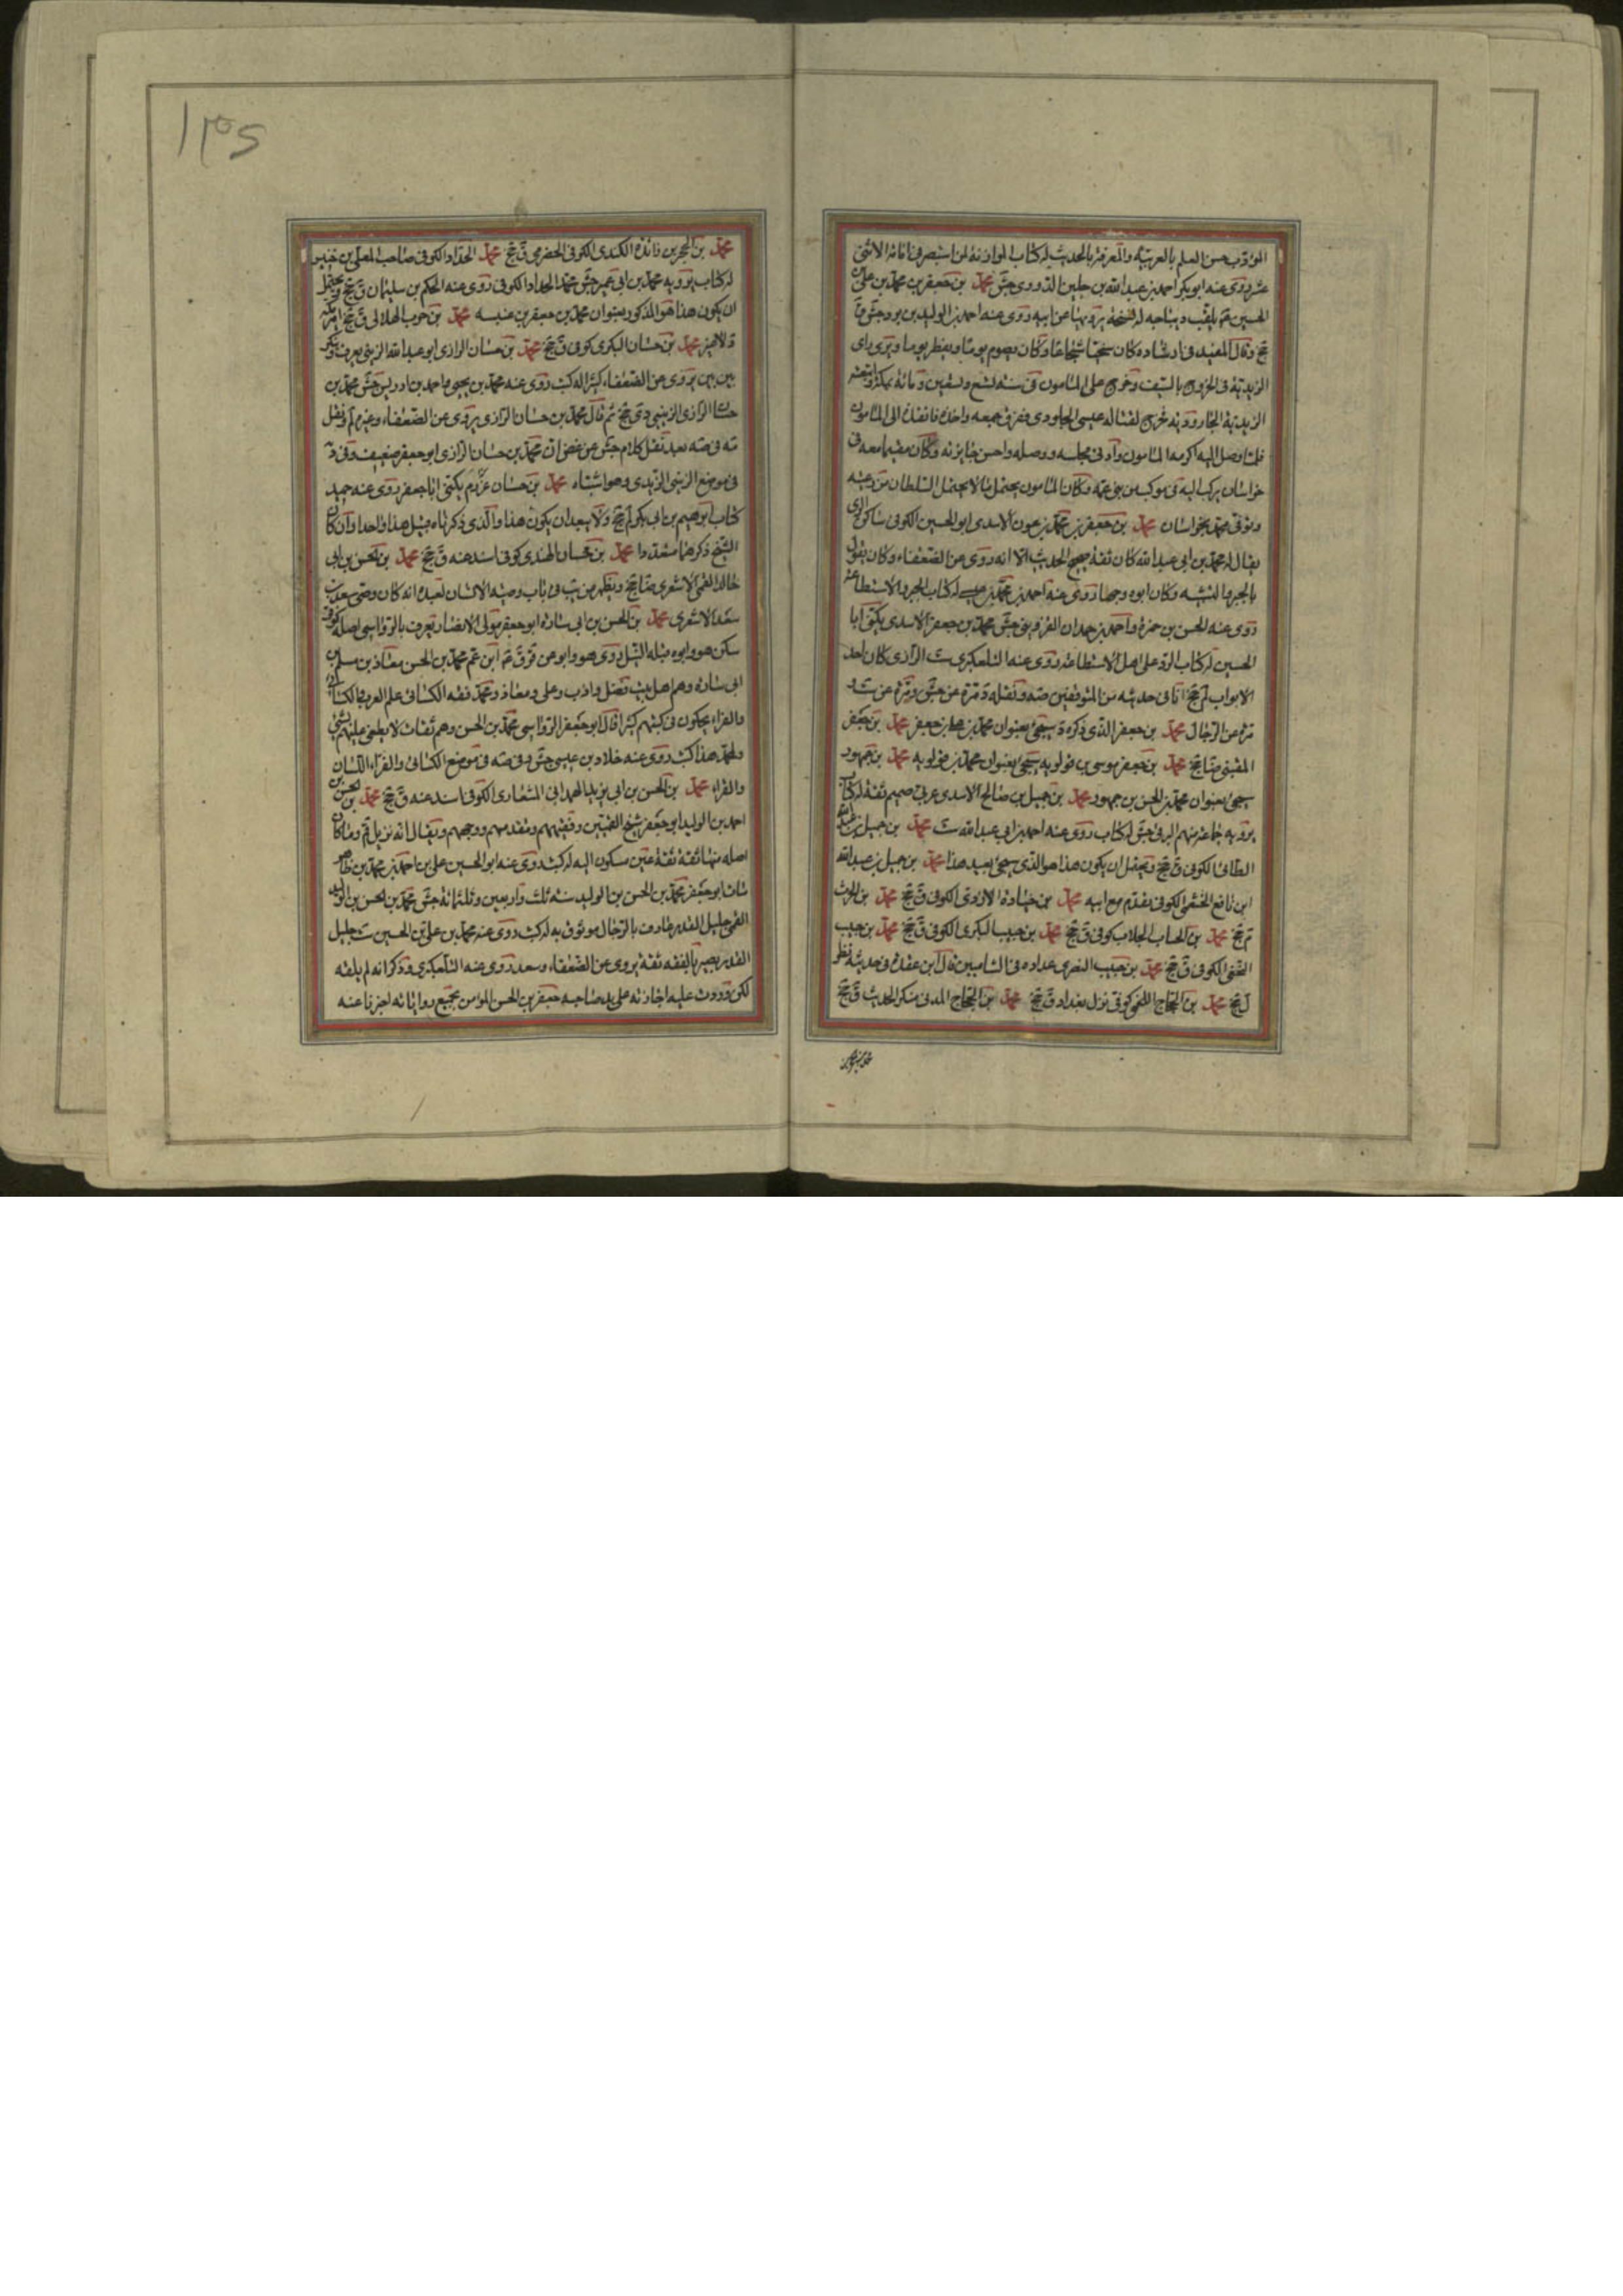 المؤدب حسن العلم بالعربية والمعرفة بالحديث له كتاب الموازنة لمن استبصر في امامة الاثنى
عشر روى عنه ابو بكر احمد بن عبد الله بن جلين الدورى جش محمد بن جعفر بن محمد بن على بن
الحسين يلقب ديباجه له نسخة يرويها عن ابيه روى عنه احمد بن الوليد بن برد جش
جخ وقال المفيد في ارشاده وكان سخيا شجاعا وكان يصوم يوما ويفطر يوما ويرى راى
الزيدية في الخروج بالسيف وخرج على المامون في سنة تسع وتسعين ومائة بمكة واتبعته
الزيدية الجارودية فخرج لقتاله عيسى الجلودى ففرق جمعه واخذه فانفذه الى المامون
فلما وصل اليه اكرمه المامون وادنى مجلسه ووصله واحسن جايزته وكان مقيما معه في
خراسان يركب اليه في موكب من بنى عمه وكان المامون يحتمل ما لا يحتمل السلطان من رعيته
وتوفى محمد بخراسان محمد بن جعفر بن محمد بن عون الاسدى ابو الحسين الكوفى ساكن الرى
يقال له محمد بن ابى عبد الله كان ثقة صحيح الحديث الا انه روى عن الضعفاء وكان يقول
بالجبر والتشبيه وكان ابوه وجها روى عنه احمد بن محمد بن عيسى له كتاب الجبر والاستطاعة
روى عنه الحسن بن حمزة واحمد بن حمدان القزوينى جش محمد بن جعفر الاسدى يكنى ابا
الحسين له كتاب الرد على اهل الاستطاعة روى عنه التلعكبرى ست الرازى كان احد
الابواب لم جخ انا في حديثه من المتوقفين صه ونقله د مرة عن جش ومرة عن ست و
مرة عن الرجال محمد بن جعفر الذى ذكره د سيجئ بعنوان محمد بن على بن جعفر محمد بن جعفر
المفتى ضا جخ محمد بن جعفر بن موسى بن قولويه سيجئ بعنوان محمد بن قولويه محمد بن جمهور
سيجئ بعنوان محمد بن الحسن بن جمهور محمد بن جميل بن صالح الاسدى عربى صميم ثقة له كتاب
يرويه جماعة منهم البرقى جش له كتاب روى عنه احمد بن ابى عبد الله ست محمد بن جميل بن عبد الله
الطائى الكوفى ق جخ ويحتمل ان يكون هذا هو الذى سيجئ بعيد هذا محمد بن جميل بن عبد الله
ابن نافع الخثعمى الكوفى يقدم مع ابيه محمد بن جنادة الازدى الكوفى ق جخ محمد بن الحرث
م جخ محمد بن الحباب الجلاب كوفى ق جخ محمد بن حبيب البكرى الكوفى ق جخ محمد بن حبيب
الكوفى ق جخ محمد بن حبيب النصرى عداده في الشاميين قال ابن عقدة في حديثه نظر
ل جخ محمد بن الحجاج اللخمى كوفى نزل بغداد ق جخ محمد بن الحجاج المدنى منكر الحديث ق جخ
محمد بن الحجر بن زائدة الكندى الكوفى الحضرمى ق جخ محمد الحداد الكوفى صاحب المعلى بن خنيس
له كتاب يرويه محمد بن ابى عمير جش محمد الحداد الكوفى روى عنه الحكم بن سليمان ق جخ ويحتمل
ان يكون هذا هو المذكور بعنوان محمد بن جعفر بن عنبسه محمد بن حرب الهلالى ق جخ
محمد بن حسان البكرى كوفى ق جخ محمد بن حسان الرازى ابو عبد الله الزينبى يعرف وينكر
بين بين يروى عن الضعفاء كثيرا له كتب روى عنه محمد بن يحيى واحمد بن ادريس جش محمد بن
حسان الرازى الزينبى دى جخ ثم قال محمد بن حسان الرازى يروى عن الضعفاء وغيره لم ونقل
صه في صه بعد نقل كلام جش عن غض ان محمد بن حسان الرازى ابو جعفر ضعيف وفى د
في موضع الزينبى الزبيدى وهو اشتباه محمد بن حسان عرزم يكنى ابا جعفر روى عنه حميد
كتاب ابراهيم بن ابى بكر لم جخ ولا يبعد ان يكون هذا والذى ذكرناه قبيل هذا واحدا وان كان
الشيخ ذكرهما متعددا محمد بن حسان الهندى كوفى اسند عنه ق جخ محمد بن الحسن بن ابى
خالد القمى الاشعرى ضا جخ ويظهر من يب في باب وصية الانسان لعبده انه كان وصى سعد بن
سعد الاشعرى محمد بن الحسن بن ابى سارة ابو جعفر مولى الانصار يعرف بالرواسى اصله كوفى
سكن هو وابوه قبله النيل روى هو وابو عن قر ق م ابن عم محمد بن الحسن معاذ بن مسلم بن
ابى سارة وهم اهل بيت فضل وادب وعلى ومعاذ ومحمد تفقه الكسائى علم العرب والكسائى
والفراء يحكون في كتبهم كثيرا قال ابو جعفر الرواسى محمد بن الحسن وهم ثقات لا يطعن عليهم بشئ
ولمحمد هذا كتب روى عنه خلاد بن عيسى جش وفى صه في موضع الكسائى والفراء الكسان
والفراء محمد بن الحسن بن ابى يزيد الهمدانى المشعارى الكوفى اسند عنه ق جخ محمد بن الحسن بن
احمد بن الوليد ابو جعفر شيخ القميين وفقيههم ومتقدمهم ووجههم ويقال انه نزيل قم وما كان
اصله منها ثقة ثقة عين مسكون اليه له كتب روى عنه ابو الحسين على بن احمد بن محمد بن طاهر
مات ابو جعفر محمد بن الحسن بن الوليد سنة ثلث واربعين وثلثمائة جش محمد بن الحسن بن الوليد
القمى جليل القدر عارف بالرجال موثوق به له كتب روى عنه محمد بن على بن الحسين ست جليل
القدر بصير بالفقه ثقة يروى عن الصفار وسعد روى عنه التلعكبرى وذكر انه لم يلقه
لكن وردت عليه اجازته على يد صاحبه جعفر بن الحسن المؤمن بجميع رواياته اخبرنا عنه